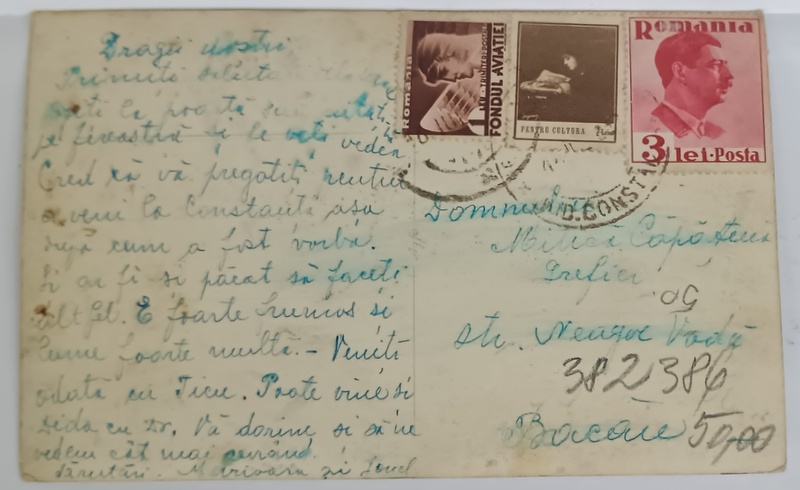 Dragii noștri
Primiți
veți la poartă
pe fereastră și le veți vedea
Cred că vă pregătiți pentru
a veni la Constanța așa
după cum a fost vorba.
Și ar fi și păcat să faceți
altfel. E foarte frumos și
lume foarte multă. - Veniți
odată cu Ticu. Poate vine și
Dida cu Dr. Vă dorim și să ne
vedem cât mai curând.
Sărutări. Marioara și Ionel
România
FONDUL AVIAȚIEI
PENTRU CULTURA
Romania
3 lei·Posta
CONSTAN
Domnului
Mihai Căpățînă
Grefier
str. Neagoe Vodă
382386
Bacău
50,00